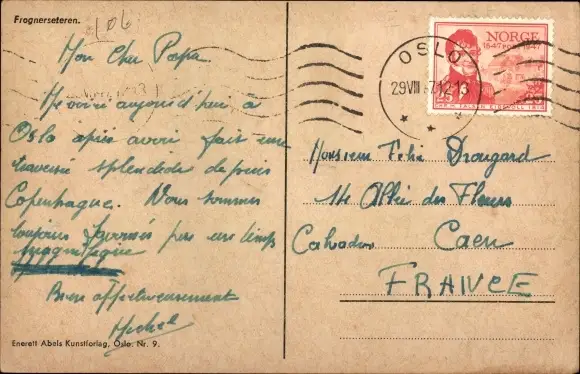 Frognerseteren.
106
Mon Cher Papa
arrivé aujourd'hui à
Oslo après avoir fait une
traversée splendide depuis
Copenhague. Nous sommes
toujours favorisés par un temps
magnifique
Bien affectueusement
Michel
Enerett Abels Kunstforlag, Oslo. Nr. 9.
NORGE
1647 POST 1947
25
OSLO
29 VIII 47 12-13
Monsieur Felix Drougard
Allée des Fleurs
Calvados Caen
FRANCE